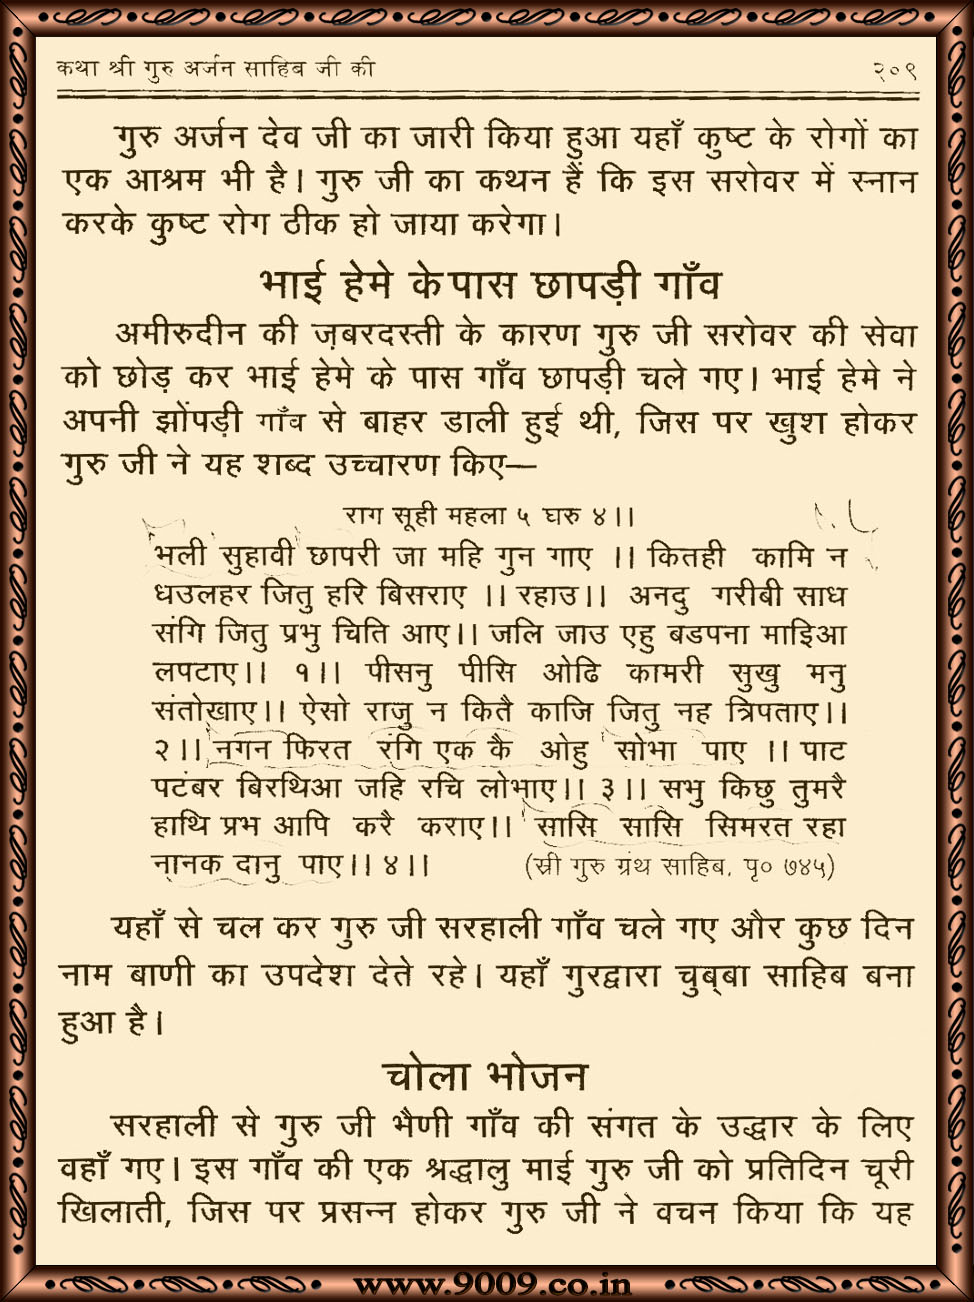 कथा श्री गुरु अर्जन साहिब जी की २०९
गुरु अर्जन देव जी का जारी किया हुआ यहाँ कुष्ट के रोगों का
एक आश्रम भी है। गुरु जी का कथन हैं कि इस सरोवर में स्नान
करके कुष्ट रोग ठीक हो जाया करेगा।
भाई हेमे के पास छापड़ी गाँव
अमीरुदीन की ज़बरदस्ती के कारण गुरु जी सरोवर की सेवा
को छोड़ कर भाई हेमे के पास गाँव छापड़ी चले गए। भाई हेमे ने
अपनी झोंपड़ी गाँव से बाहर डाली हुई थी, जिस पर खुश होकर
गुरु जी ने यह शब्द उच्चारण किए—
राग सूही महला ५ घरु ४।।
भली सुहावी छापरी जा महि गुन गाए ।। कितही कामि न
धउलहर जितु हरि बिसराए ।। रहाउ।। अनदु गरीबी साध
संगि जितु प्रभु चिति आए।। जलि जाउ एहु बडपना माइआ
लपटाए।। १।। पीसनु पीसि ओढि कामरी सुखु मनु
संतोखाए।। ऐसो राजु न कितै काजि जितु नह त्रिपताए।।
२।। नगन फिरत रंगि एक कै ओहु सोभा पाए ।। पाट
पटंबर बिरथिआ जहि रचि लोभाए।। ३।। सभु किछु तुमरै
हाथि प्रभ आपि करै कराए।। सासि सासि सिमरत रहा
नानक दानु पाए।। ४।। (स्री गुरु ग्रंथ साहिब, पृ० ७४५)
यहाँ से चल कर गुरु जी सरहाली गाँव चले गए और कुछ दिन
नाम बाणी का उपदेश देते रहे। यहाँ गुरद्वारा चुब्बा साहिब बना
हुआ है।
चोला भोजन
सरहाली से गुरु जी भैणी गाँव की संगत के उद्धार के लिए
वहाँ गए। इस गाँव की एक श्रद्धालु माई गुरु जी को प्रतिदिन चूरी
खिलाती, जिस पर प्रसन्न होकर गुरु जी ने वचन किया कि यह
www.9009.co.in